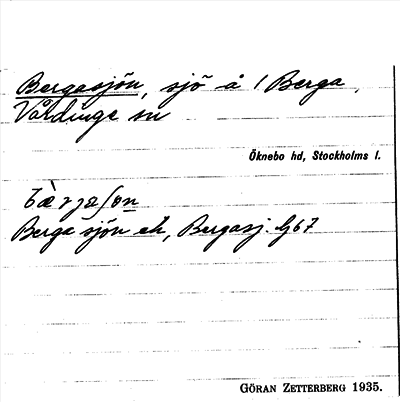 Bergasjön, sjö å 1 Berga,
Vårdinge sn
Öknebo hd, Stockholms l.
bàrjaʃön
Berga sjön ek, Bergasj. Gj67
GÖRAN ZETTERBERG 1935.